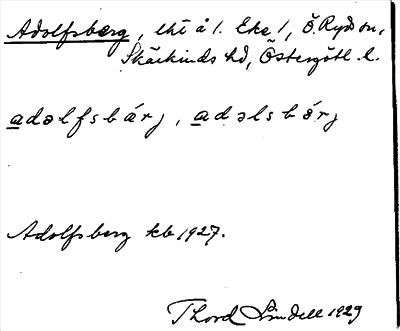 Adolfsberg, lht å l. Eke l, Ö. Ryd sn,
Skärkinds hd, Östergötl. l.
adəlfsbárj, adəlsbə́rj
Adolfsberg kb 1927.
Thord Lindell 1929